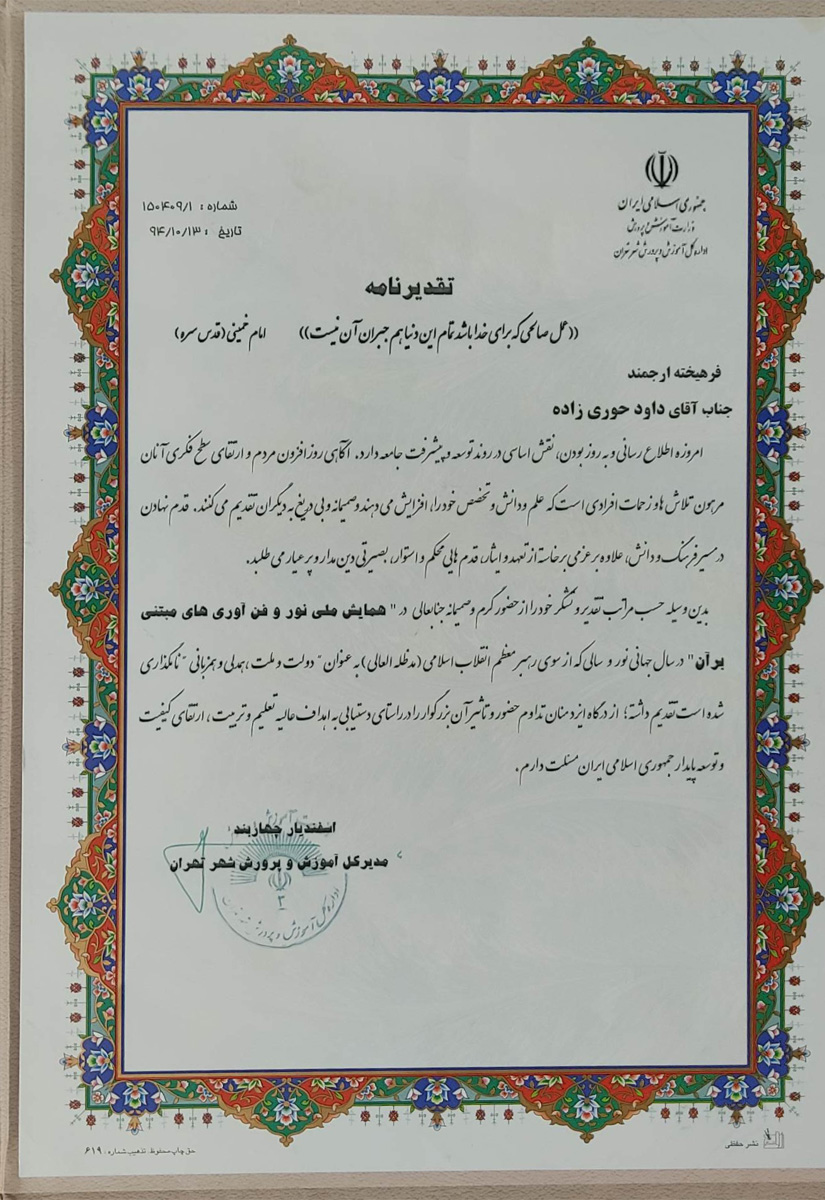 جمهوری اسلامی ایران
وزارت آموزش و پرورش
اداره کل آموزش و پرورش شهر تهران
شماره : ۱۵۰۴۰۹/۱
تاریخ : ۹۴/۱۰/۱۳
تقدیرنامه
((عمل صالحی که برای خدا باشد تمام این دنیا هم جبران آن نیست)) امام خمینی (قدس سره)
فرهیخته ارجمند
جناب آقای داود حوری زاده
امروزه اطلاع رسانی و به روز بودن، نقش اساسی در روند توسعه و پیشرفت جامعه دارد. آگاهی روز افزون مردم و ارتقای سطح فکری آنان
مرهون تلاش ها و زحمات افرادی است که علم و دانش و تخصص خود را، افزایش می دهند و صمیمانه و بی دریغ به دیگران تقدیم می کنند. قدم نهادن
در مسیر فرهنگ و دانش، علاوه بر عزمی برخاسته از تعهد و ایثار، قدم هایی محکم و استوار، بصیرتی دین مدار و پر عیار می طلبد.
بدین وسیله حسب مراتب تقدیر و تشکر خود را از حضور گرم و صمیمانه جنابعالی در " همایش ملی نور و فن آوری های مبتنی
بر آن" در سال جهانی نور و سالی که از سوی رهبر معظم انقلاب اسلامی (مدظله العالی) به عنوان " دولت و ملت ، همدلی و همزبانی " نامگذاری
شده است تقدیم داشته؛ از درگاه ایزد منان تداوم حضور و تاثیر آن بزرگوار را در راستای دستیابی به اهداف عالیه تعلیم و تربیت ، ارتقای کیفیت
و توسعه پایدار جمهوری اسلامی ایران مسئلت دارم .
اسفندیار چهاربند
مدیرکل آموزش و پرورش شهر تهران
۳
اداره کل آموزش و پرورش شهر تهران
نشر حفظی
حق چاپ محفوظ. تذهیب شماره : ۶۱۹